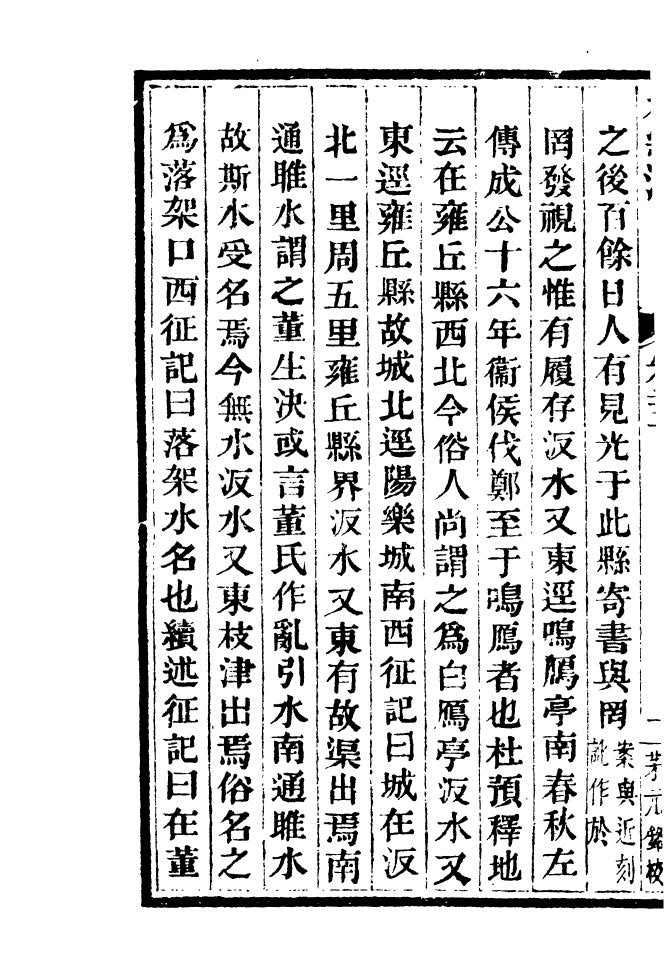 之後百餘日人有見光于此縣寄書與罔案與近刻訛作於
罔發視之惟有履存汳水又東逕鳴鴈亭南春秋左
傳成公十六年衞侯伐鄭至于鳴鴈者也杜預釋地
云在雍丘縣西北今俗人尚謂之爲白鴈亭汳水又
東逕雍丘縣故城北逕陽樂城南西征記曰城在汳
北一里周五里雍丘縣界汳水又東有故渠出焉南
通睢水謂之董生決或言董氏作亂引水南通睢水
故斯水受名焉今無水汳水又東枝津出焉俗名之
爲落架口西征記曰落架水名也續述征記曰在董